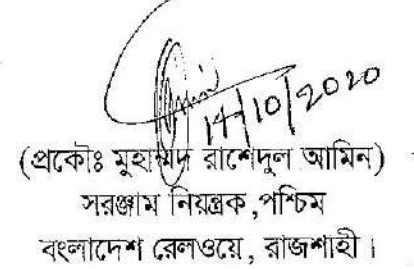 14/10/2020
(প্রকৌঃ মুহাম্মদ রাশেদুল আমিন)
সরঞ্জাম নিয়ন্ত্রক,পশ্চিম
বাংলাদেশ রেলওয়ে, রাজশাহী।